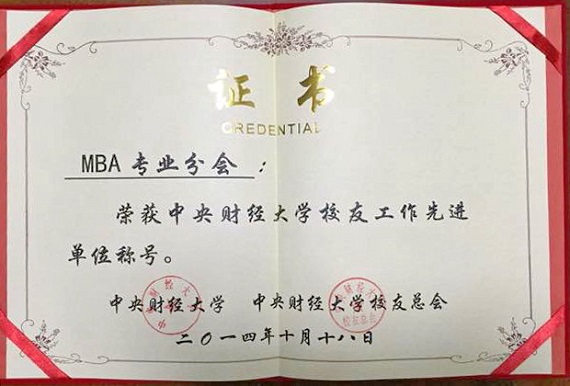 证书
CREDENTIAL
MBA 专业分会：
荣获中央财经大学校友工作先进
单位称号。
中央财经大学 中央财经大学校友总会
二〇一四年十月十八日